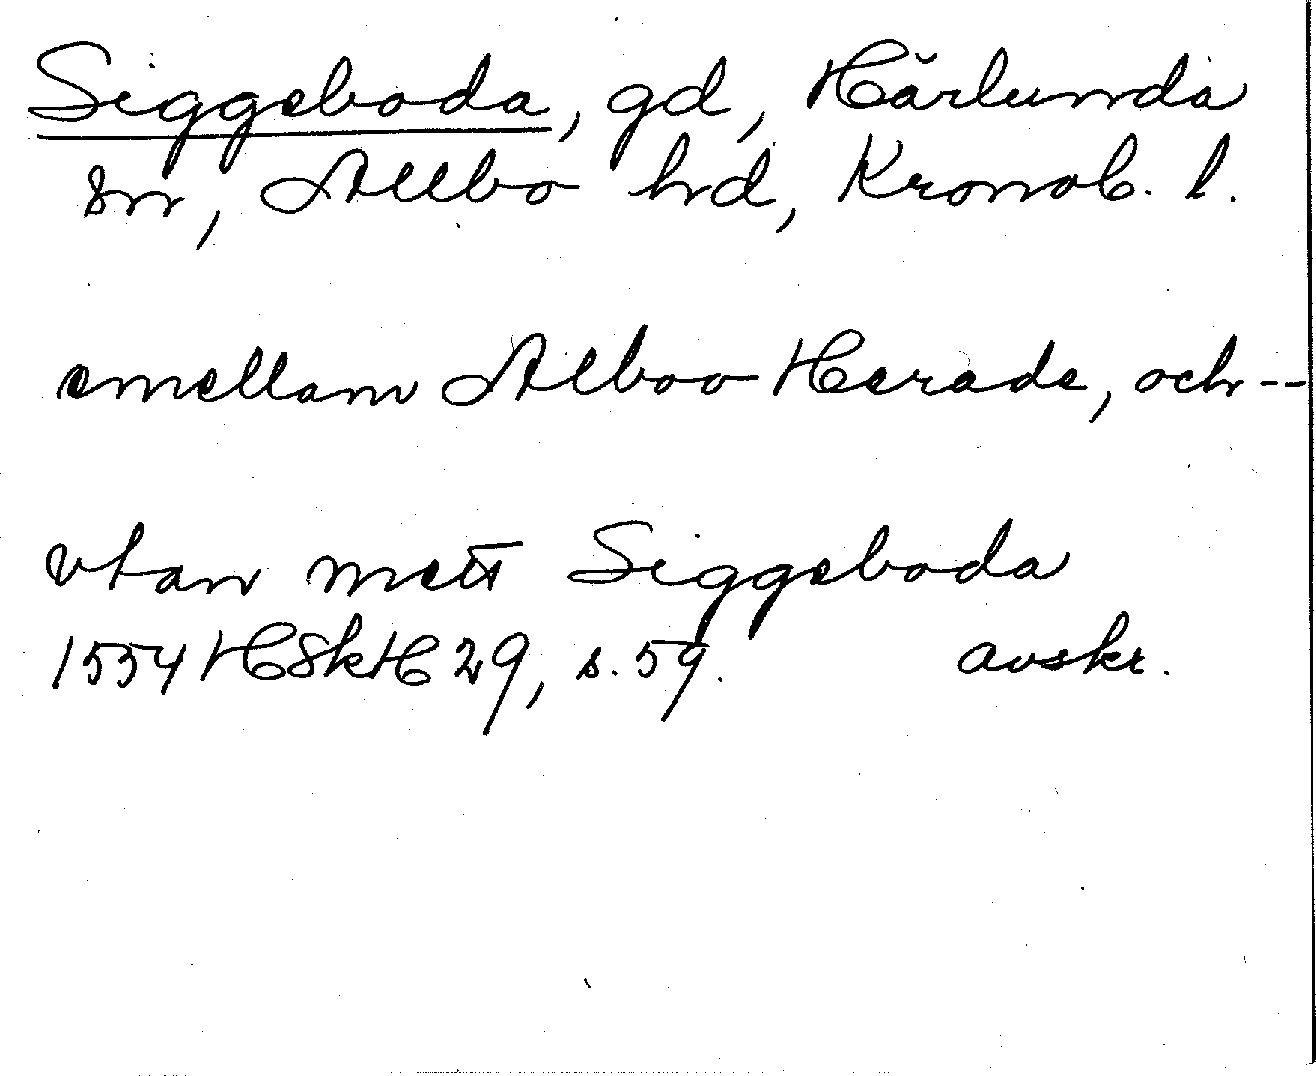 Siggeboda, gd, Härlunda
sn, Allbo hd, Kronob. l.
emellam Alboo Herade, och--
vtan mett Siggeboda
1554 HSkH 29, s. 59. avskr.